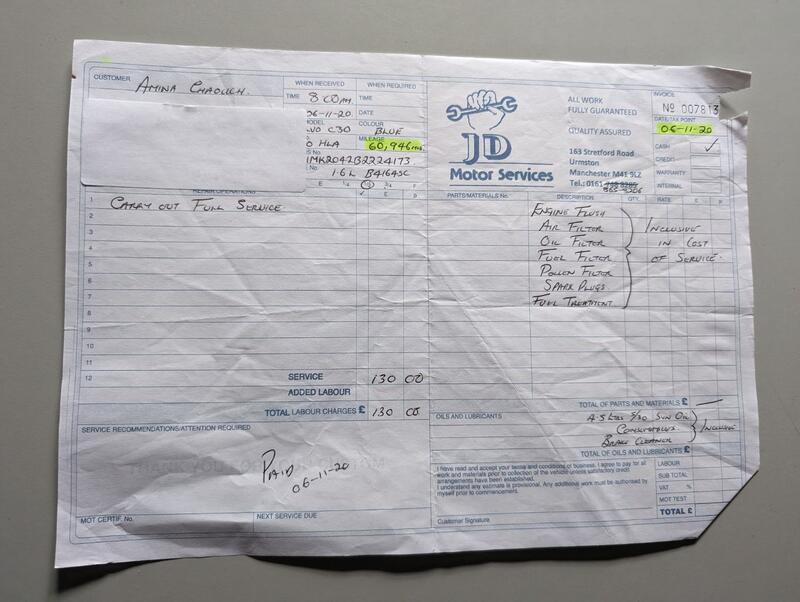 CUSTOMER AMINA CHAOUCH.
WHEN RECEIVED WHEN REQUIRED
TIME 8 00AM. TIME
06-11-20 DATE
MODEL COLOUR
VO C30 BLUE
MILEAGE
O HLA 60,946
1MK2042B2224173
1.6L B4164SC
E ¼ ½ ¾ F
REPAIR OPERATIONS
1 CARRY OUT FULL SERVICE.
2
3
4
5
6
7
8
9
10
11
12
SERVICE 130 00
ADDED LABOUR
TOTAL LABOUR CHARGES £ 130 00
SERVICE RECOMMENDATIONS/ATTENTION REQUIRED
PAID
06-11-20
MOT CERTIF. No.
NEXT SERVICE DUE
JD
Motor Services
ALL WORK
FULLY GUARANTEED
QUALITY ASSURED
163 Stretford Road
Urmston
Manchester M41 9LZ
Tel.: 0161
INVOICE
No 007813
DATE/TAX POINT
06-11-20
CASH ✓
CREDIT
WARRANTY
INTERNAL
PARTS/MATERIALS No. DESCRIPTION QTY. RATE £ p
ENGINE FLUSH
AIR FILTER
OIL FILTER
FUEL FILTER
POLLEN FILTER
SPARK PLUGS
FUEL TREATMENT
INCLUSIVE
IN COST
OF SERVICE.
TOTAL OF PARTS AND MATERIALS £ —
OILS AND LUBRICANTS
5/30 SUN OIL
CONSUMABLES
BRAKE CLEANER
INCLUSIVE
TOTAL OF OILS AND LUBRICANTS £
I have read and accept your terms and conditions of business. I agree to pay for all
work and materials prior to collection of the vehicle unless satisfactory credit
arrangements have been established.
I understand any estimate is provisional. Any additional work must be authorised by
myself prior to commencement.
Customer Signature
LABOUR
SUB TOTAL
VAT %
MOT TEST
TOTAL £